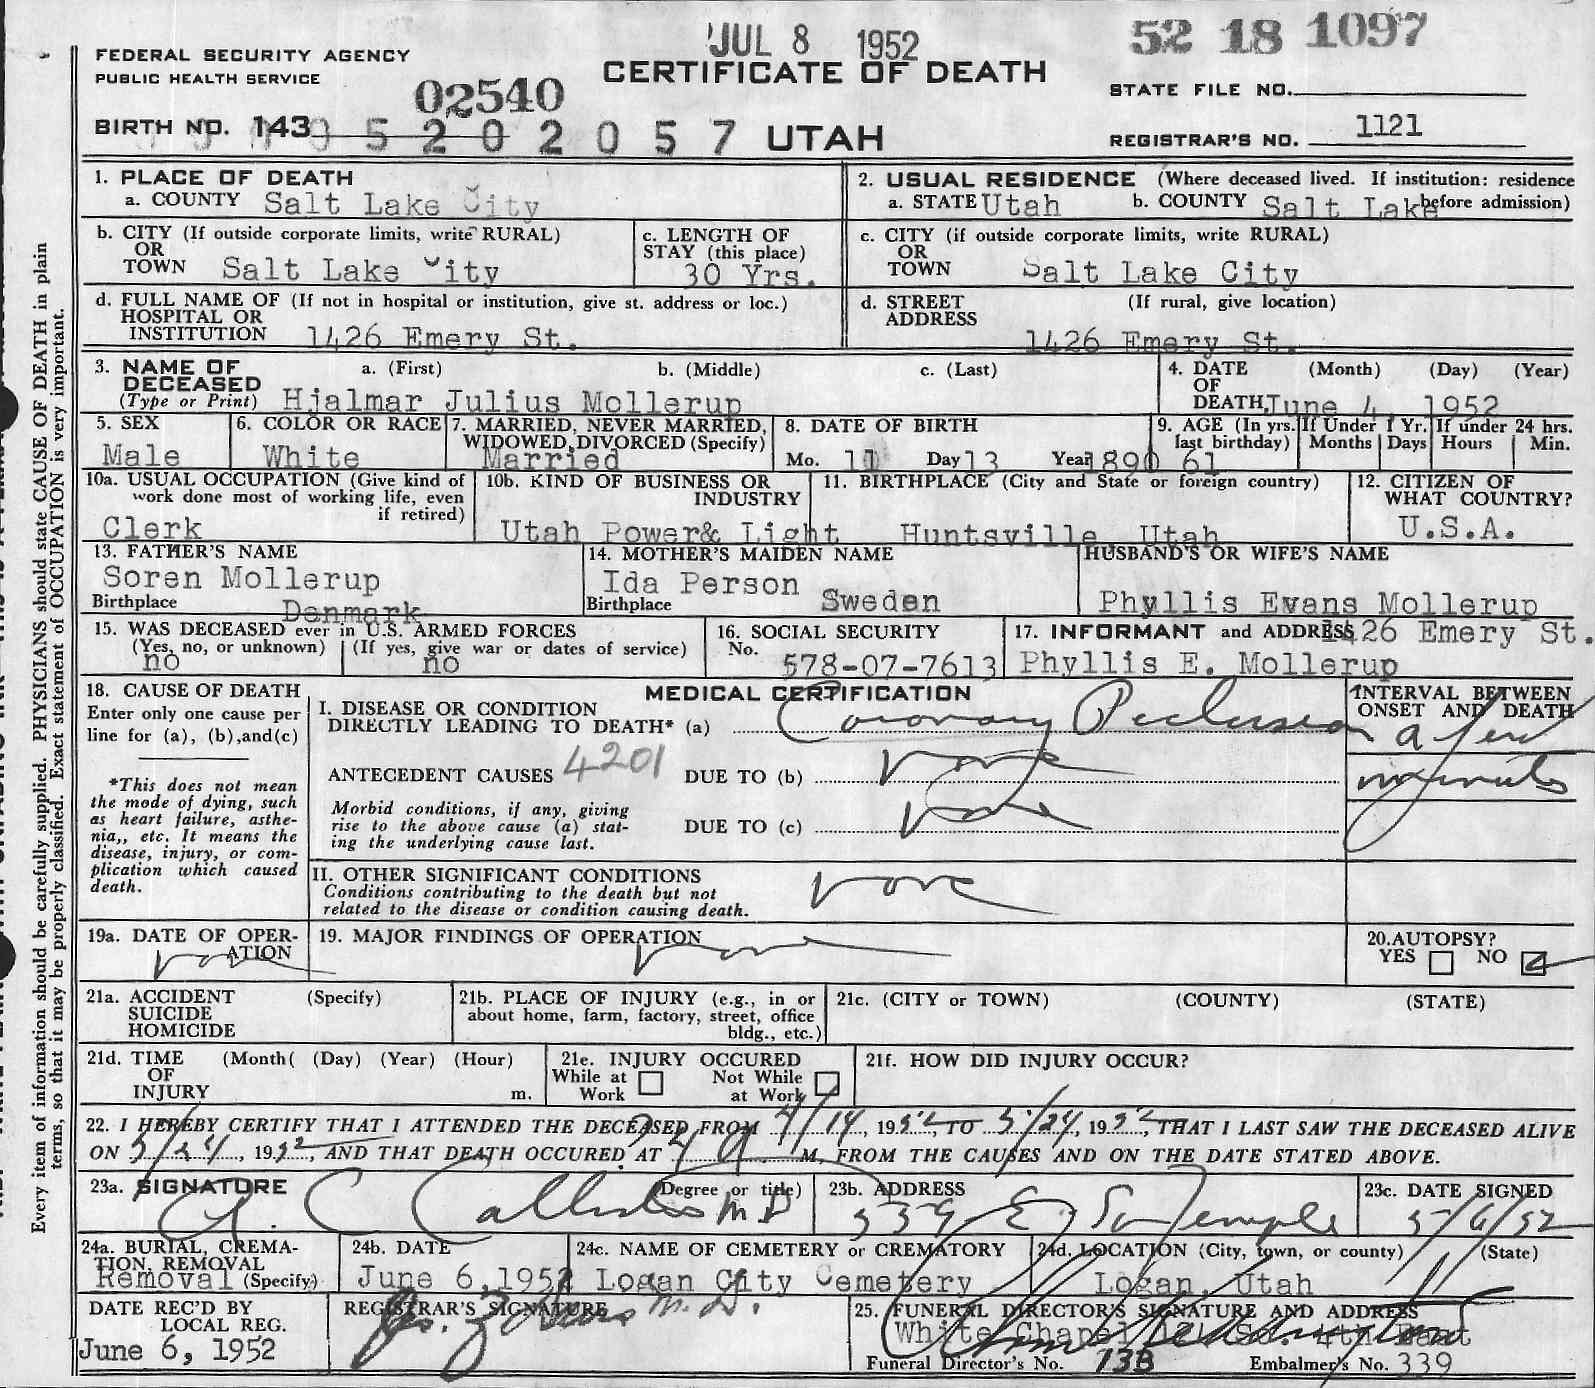 JUL 8 1952
52 18 1097
FEDERAL SECURITY AGENCY
PUBLIC HEALTH SERVICE
CERTIFICATE OF DEATH
STATE FILE NO.
02540
BIRTH NO. 143
5 2 0 2 0 5 7
UTAH
REGISTRAR'S NO. 1121
1. PLACE OF DEATH
a. COUNTY Salt Lake City
2. USUAL RESIDENCE (Where deceased lived. If institution: residence before admission)
a. STATE Utah b. COUNTY Salt Lake
b. CITY (If outside corporate limits, write RURAL)
OR
TOWN Salt Lake City
c. LENGTH OF
STAY (this place)
30 Yrs.
c. CITY (if outside corporate limits, write RURAL)
OR
TOWN Salt Lake City
d. FULL NAME OF (If not in hospital or institution, give st. address or loc.)
HOSPITAL OR
INSTITUTION 1426 Emery St.
d. STREET (If rural, give location)
ADDRESS
1426 Emery St.
3. NAME OF a. (First) b. (Middle) c. (Last)
DECEASED
(Type or Print) Hjalmar Julius Mollerup
4. DATE (Month) (Day) (Year)
OF
DEATH June 4, 1952
5. SEX
Male
6. COLOR OR RACE
White
7. MARRIED, NEVER MARRIED,
WIDOWED, DIVORCED (Specify)
Married
8. DATE OF BIRTH
Mo. 11 Day 13 Year 1890
9. AGE (In yrs. last birthday) 61
If Under 1 Yr. Months Days
If under 24 hrs. Hours Min.
10a. USUAL OCCUPATION (Give kind of
work done most of working life, even
if retired)
Clerk
10b. KIND OF BUSINESS OR
INDUSTRY
Utah Power& Light
11. BIRTHPLACE (City and State or foreign country)
Huntsville, Utah
12. CITIZEN OF
WHAT COUNTRY?
U.S.A.
13. FATHER'S NAME
Soren Mollerup
Birthplace Denmark
14. MOTHER'S MAIDEN NAME
Ida Person
Birthplace Sweden
HUSBAND'S OR WIFE'S NAME
Phyllis Evans Mollerup
15. WAS DECEASED ever in U.S. ARMED FORCES
(Yes, no, or unknown) (If yes, give war or dates of service)
no no
16. SOCIAL SECURITY
No. 578-07-7613
17. INFORMANT and ADDRESS 1426 Emery St.
Phyllis E. Mollerup
18. CAUSE OF DEATH
Enter only one cause per
line for (a), (b),and(c)
*This does not mean
the mode of dying, such
as heart failure, asthe-
nia,, etc. It means the
disease, injury, or com-
plication which caused
death.
MEDICAL CERTIFICATION
I. DISEASE OR CONDITION
DIRECTLY LEADING TO DEATH* (a) Coronary Occlusion
INTERVAL BETWEEN
ONSET AND DEATH
a few
minutes
ANTECEDENT CAUSES 4201 DUE TO (b) none
Morbid conditions, if any, giving
rise to the above cause (a) stat-
ing the underlying cause last.
DUE TO (c) none
II. OTHER SIGNIFICANT CONDITIONS
Conditions contributing to the death but not
related to the disease or condition causing death.
none
19a. DATE OF OPER-
ATION
none
19. MAJOR FINDINGS OF OPERATION
none
20.AUTOPSY?
YES NO
21a. ACCIDENT (Specify)
SUICIDE
HOMICIDE
21b. PLACE OF INJURY (e.g., in or
about home, farm, factory, street, office
bldg., etc.)
21c. (CITY or TOWN) (COUNTY) (STATE)
21d. TIME (Month( (Day) (Year) (Hour)
OF
INJURY m.
21e. INJURY OCCURED
While at Work
Not While at Work
21f. HOW DID INJURY OCCUR?
22. I HEREBY CERTIFY THAT I ATTENDED THE DECEASED FROM 4/14, 1952, TO 5/24, 1952, THAT I LAST SAW THE DECEASED ALIVE
ON 5/24, 1952, AND THAT DEATH OCCURED AT M. FROM THE CAUSES AND ON THE DATE STATED ABOVE.
23a. SIGNATURE (Degree or title)
Callister M D
23b. ADDRESS
339 E So Temple
23c. DATE SIGNED
5/6/52
24a. BURIAL, CREMA-
TION, REMOVAL
Removal (Specify)
24b. DATE
June 6,1952
24c. NAME OF CEMETERY or CREMATORY
Logan City Cemetery
24d. LOCATION (City, town, or county) (State)
Logan, Utah
DATE REC'D BY
LOCAL REG.
June 6, 1952
REGISTRAR'S SIGNATURE
M. D.
25. FUNERAL DIRECTOR'S SIGNATURE AND ADDRESS
White Chapel So. 4th East
Funeral Director's No. 133 Embalmer's No. 339
Every item of information should be carefully supplied. PHYSICIANS should state CAUSE OF DEATH in plain
terms, so that it may be properly classified. Exact statement of OCCUPATION is very important.